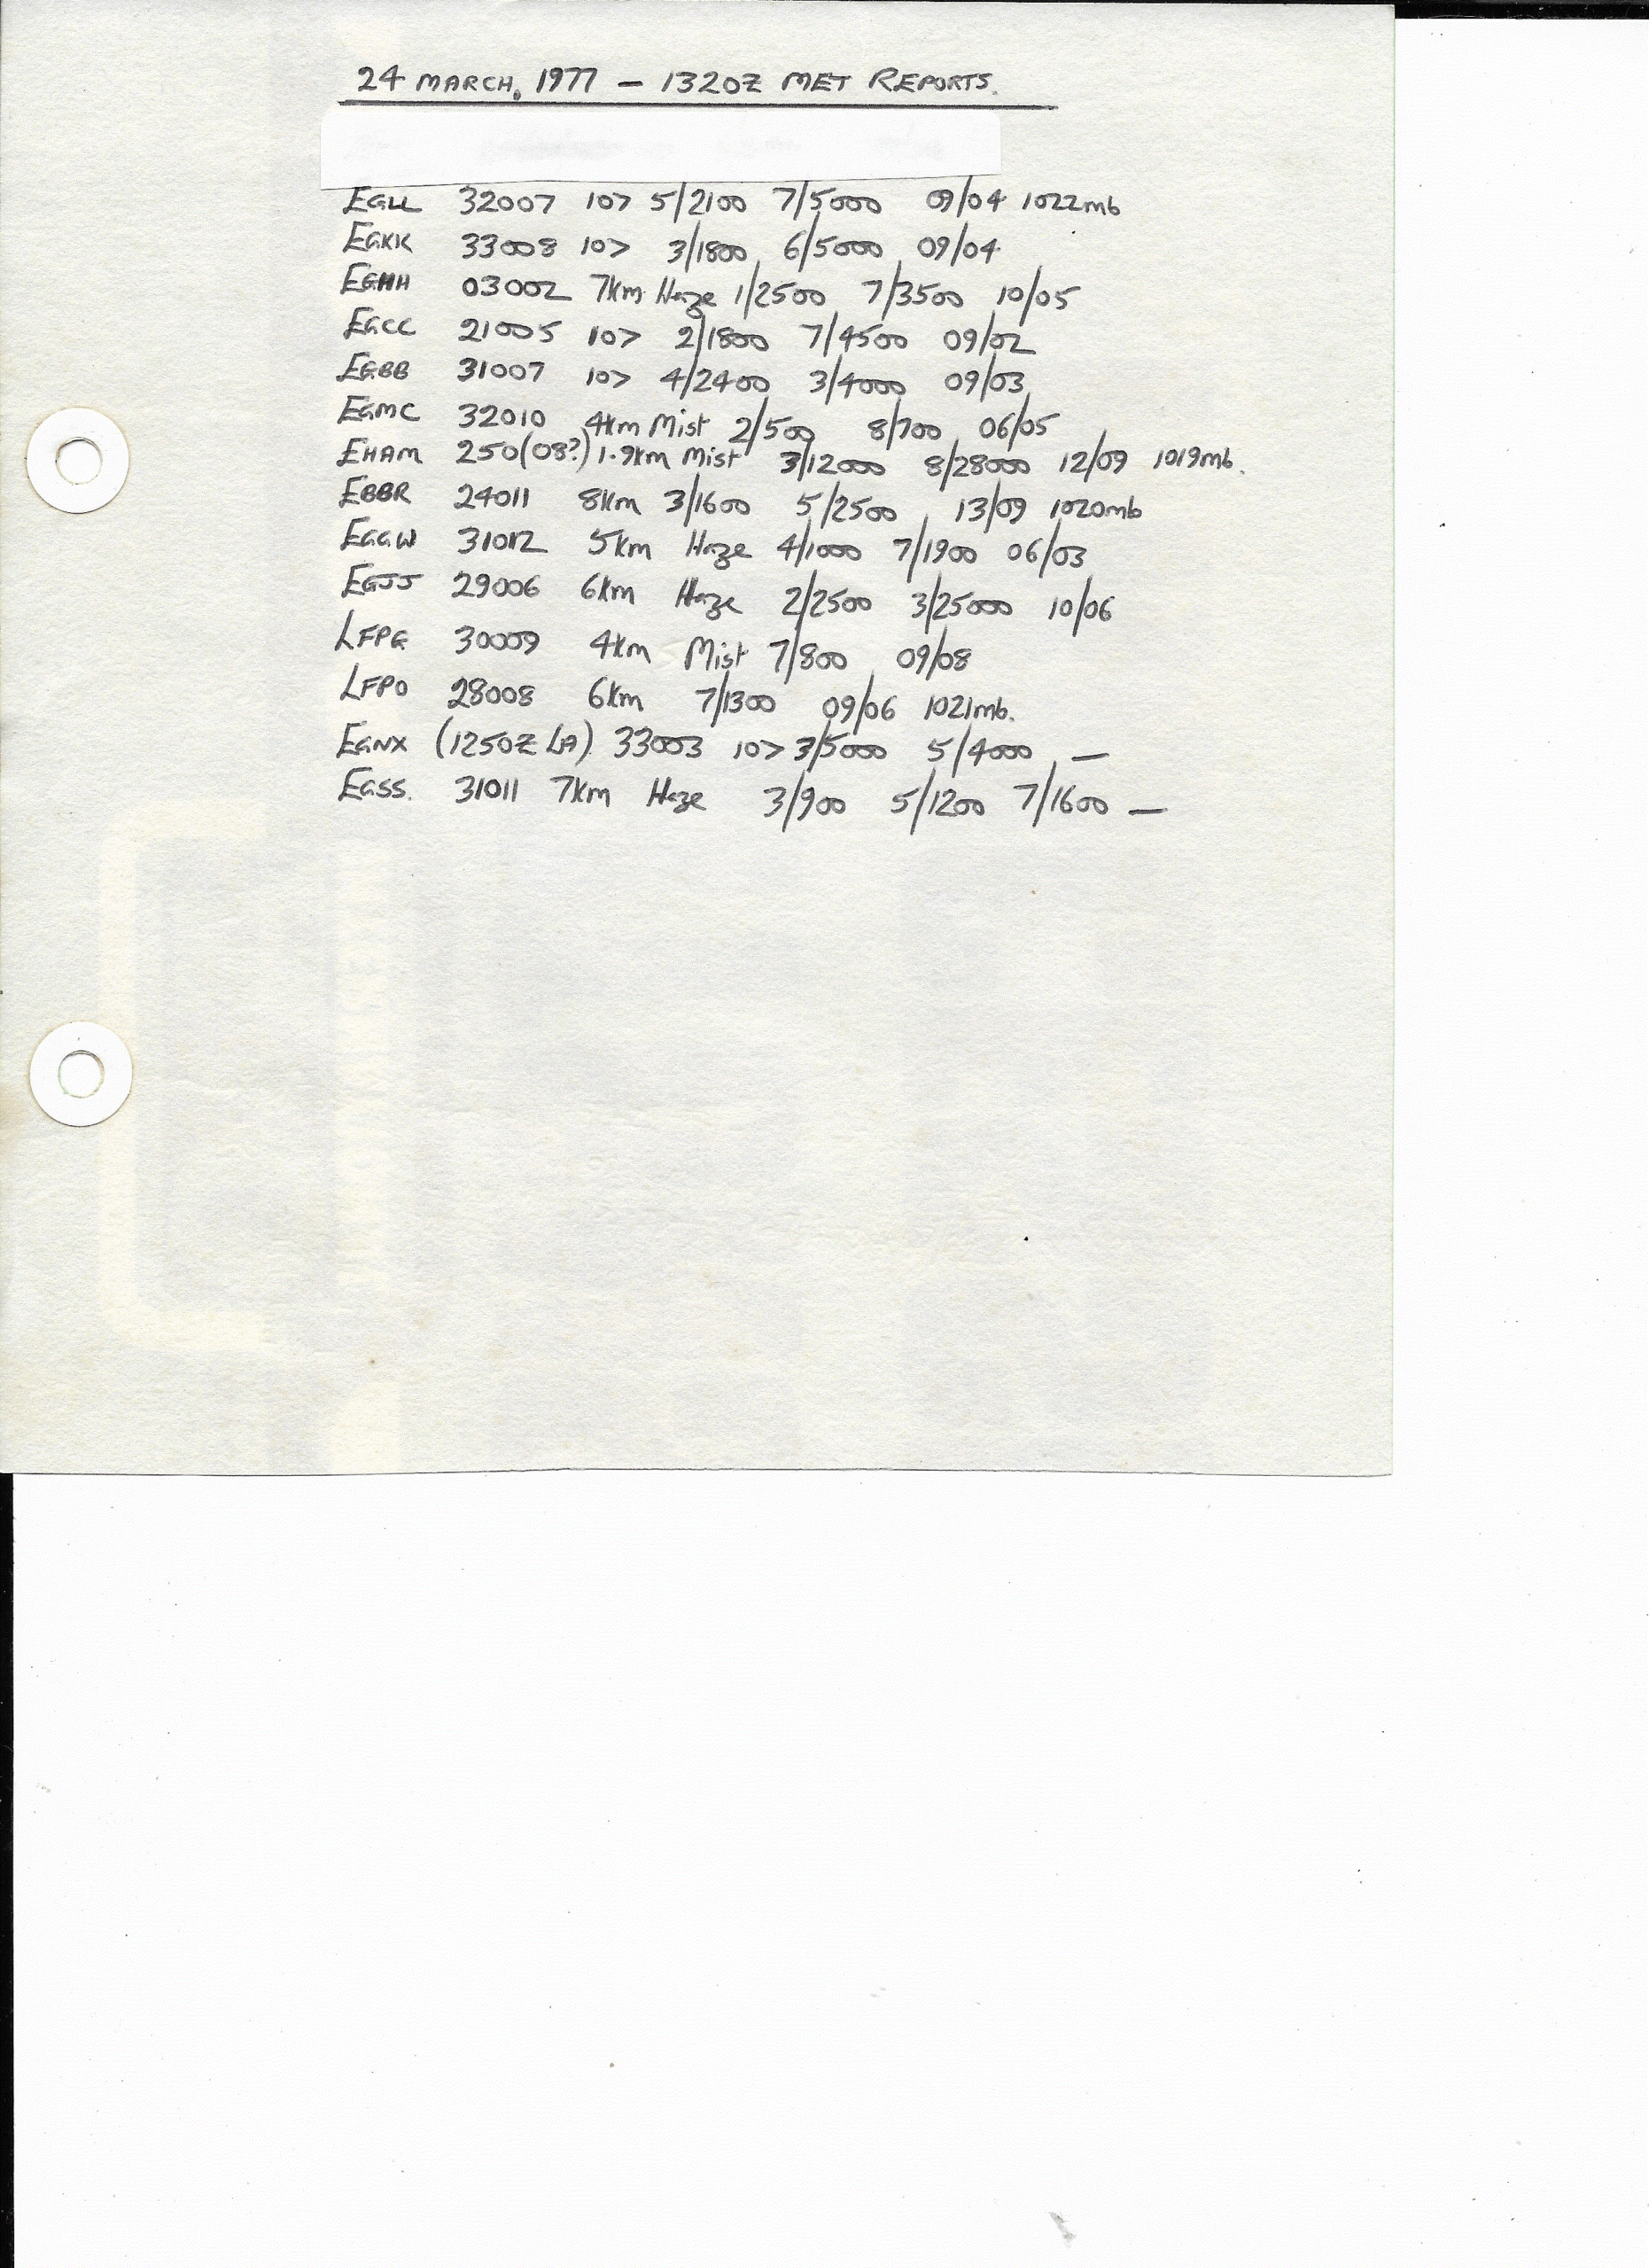 24 MARCH, 1977 — 1320Z MET REPORTS.
EGLL 32007 10> 5/2100 7/5000 09/04 1022mb
EGKK 33008 10> 3/1800 6/5000 09/04
EGHH 03002 7km Haze 1/2500 7/3500 10/05
EGCC 21005 10> 2/1800 7/4500 09/02
EGBB 31007 10> 4/2400 3/4000 09/03
EGMC 32010 4km Mist 2/500 8/700 06/05
EHAM 250(08?) 1.9km Mist 3/12000 8/28000 12/09 1019mb.
EBBR 24011 8km 3/1600 5/2500 13/09 1020mb
EGGW 31012 5km Haze 4/1000 7/1900 06/03
EGJJ 29006 6km Haze 2/2500 3/25000 10/06
LFPG 30009 4km Mist 7/800 09/08
LFPO 28008 6km 7/1300 09/06 1021mb.
EGNX (1250Z LA) 33003 10> 3/5000 5/4000 —
EGSS. 31011 7km Haze 3/900 5/1200 7/1600 —